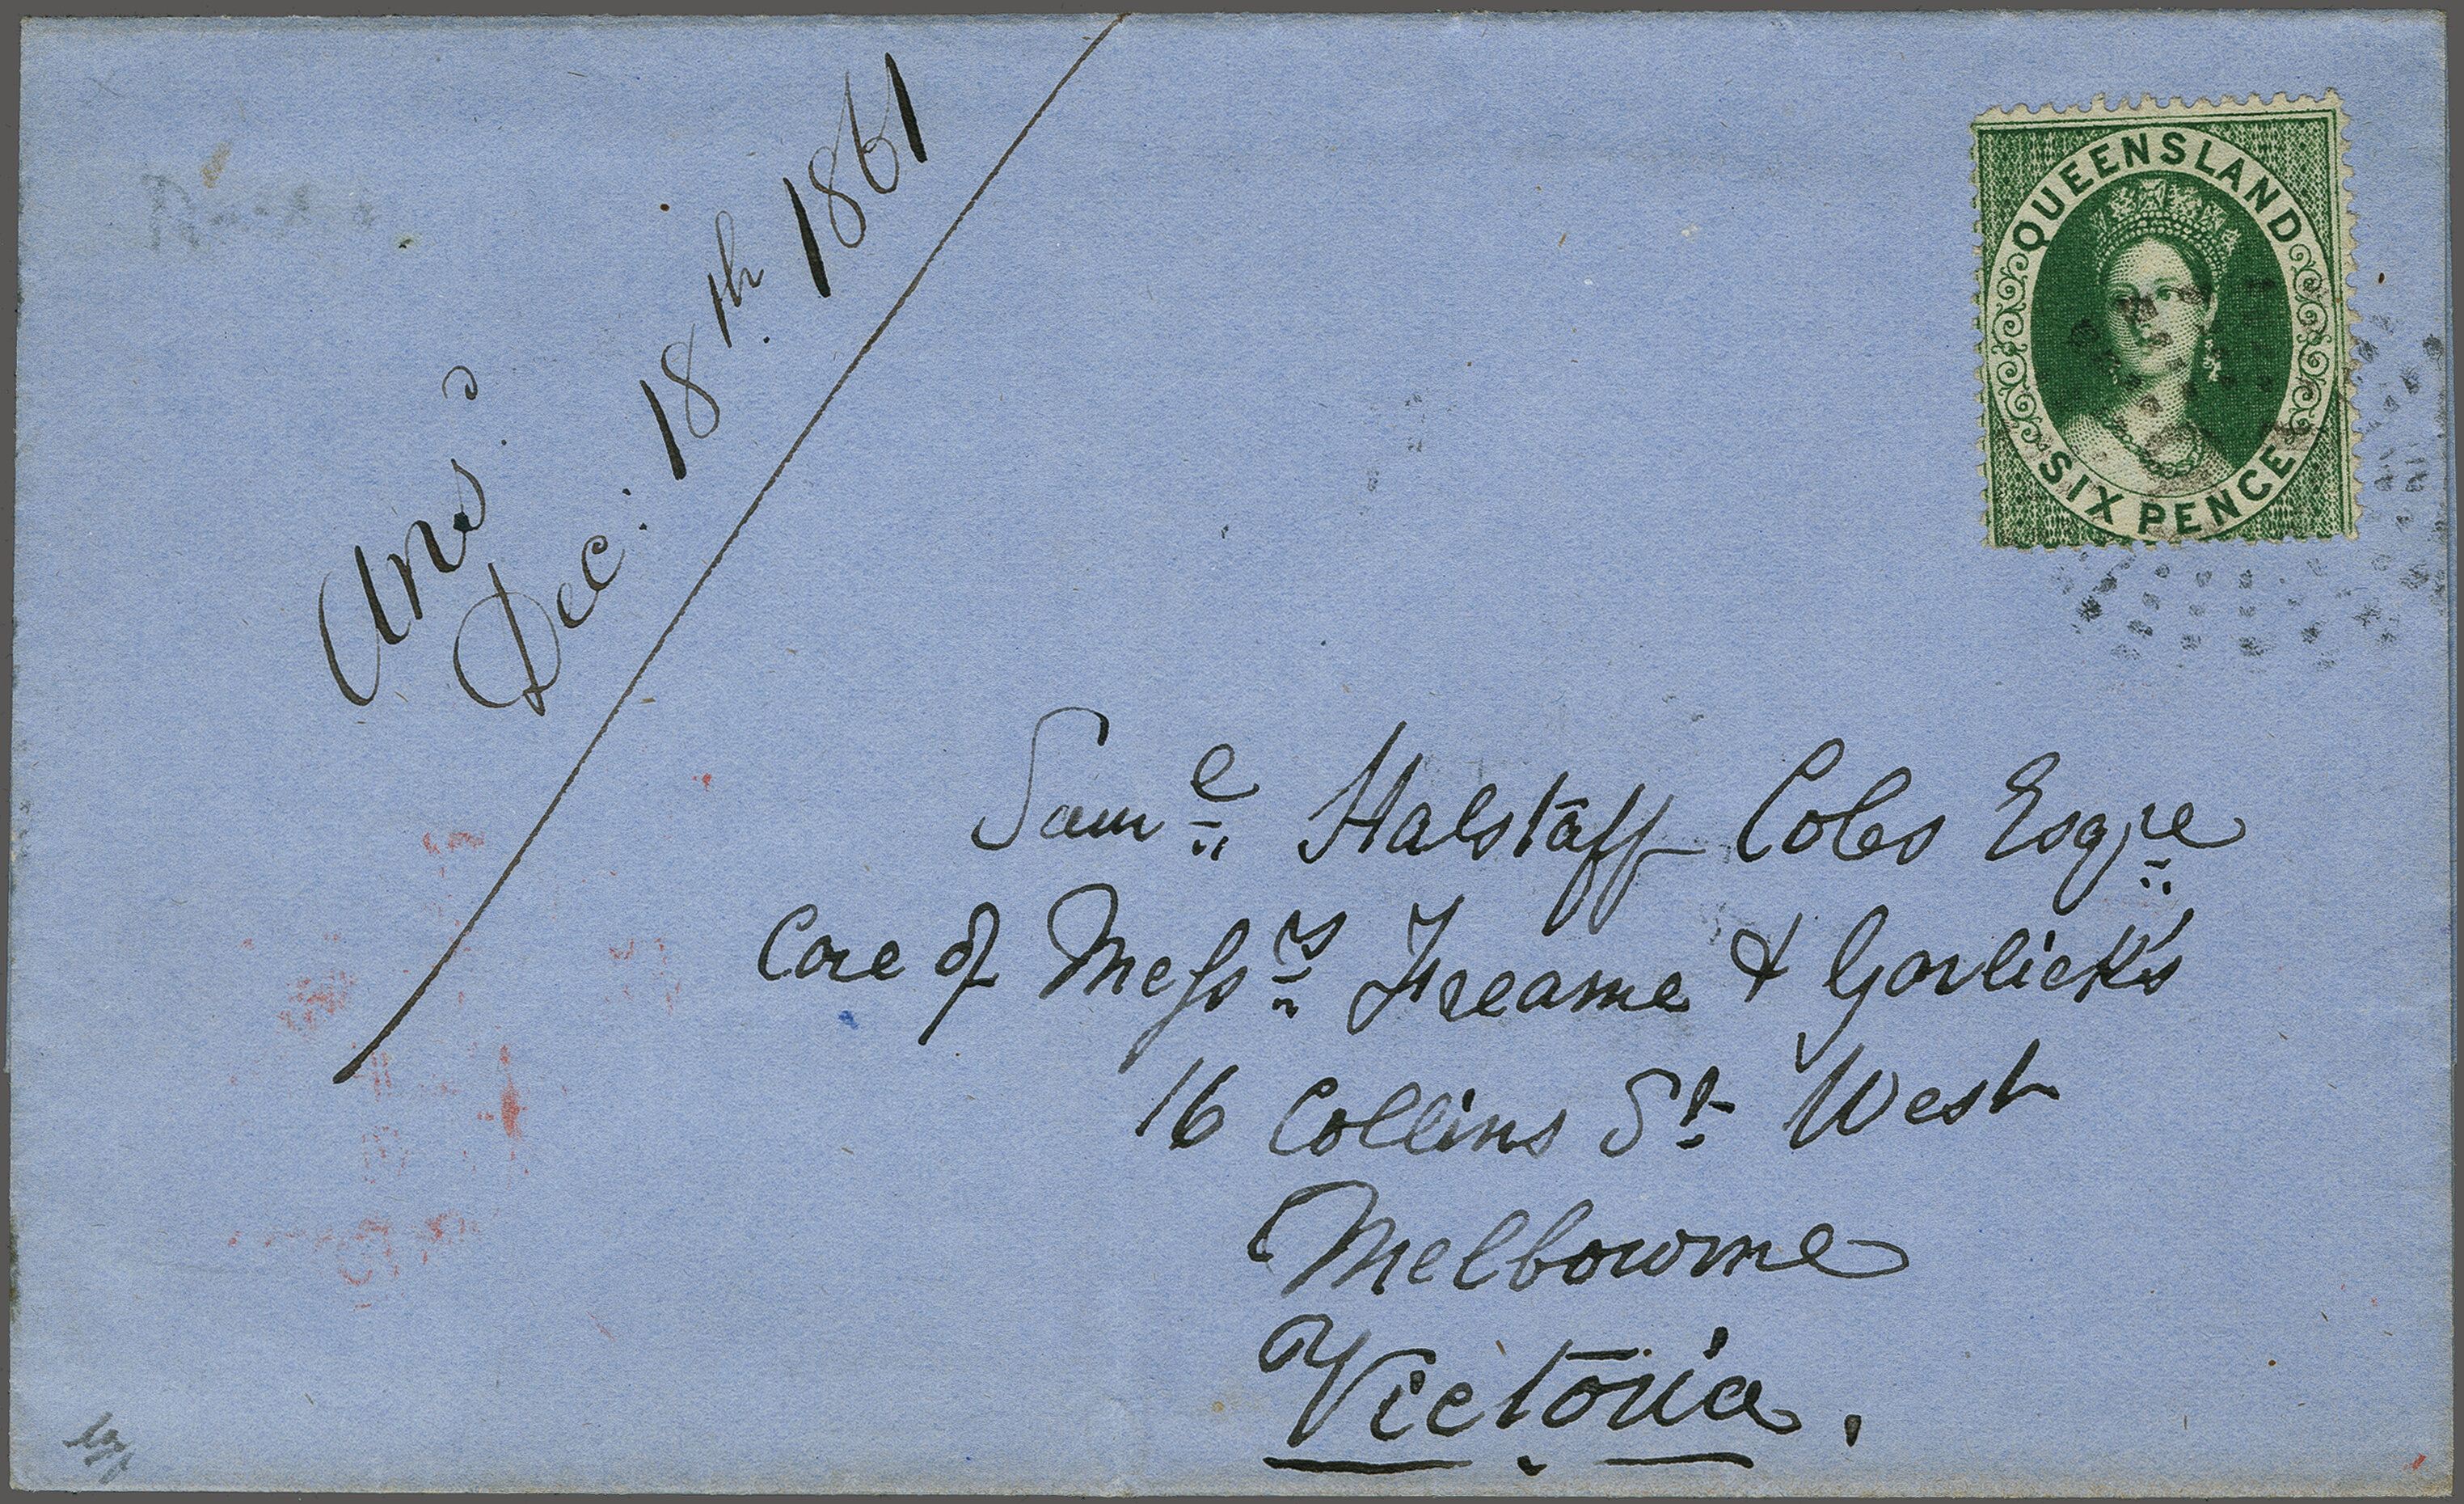 Ans^d
Dec: 18th. 1861
QUEENSLAND
SIX PENCE
Sam^l Halstaff Coles Esq^re
Care of Mess^rs Freame & Garlick's
16 Collins St West
Melbourne
Victoria.